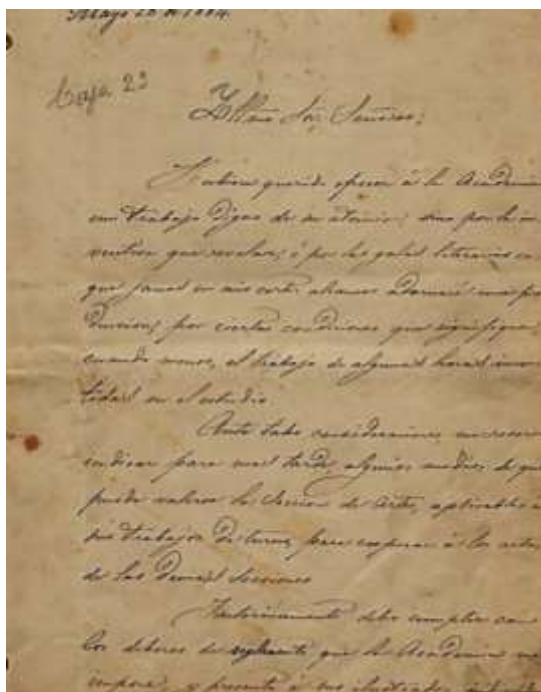 Mayo 20 de 1884.
Caja 23
Illmo Sor, Señores;
Hubiera querido ofrecer á la Academia
un trabajo digno de su atencion; sino por la in
ventiva que revelara, ó por las galas literarias con
que jamas en mis cortos alcances adornaré una pro
duccion, por ciertas condiciones que signifiquen,
cuando menos, el trabajo de algunas horas inver
tidas en el estudio
Ante tales consideraciones me reservo
indicar para mas tarde, algunos medios de que
puede valerse la Seccion de Artes, aplicables á
sus trabajos de turno, para cooperar á los actos
de las demas Secciones
debo cumplir con
los deberes de que la Academia me
impone, y presento á sus ilustrados